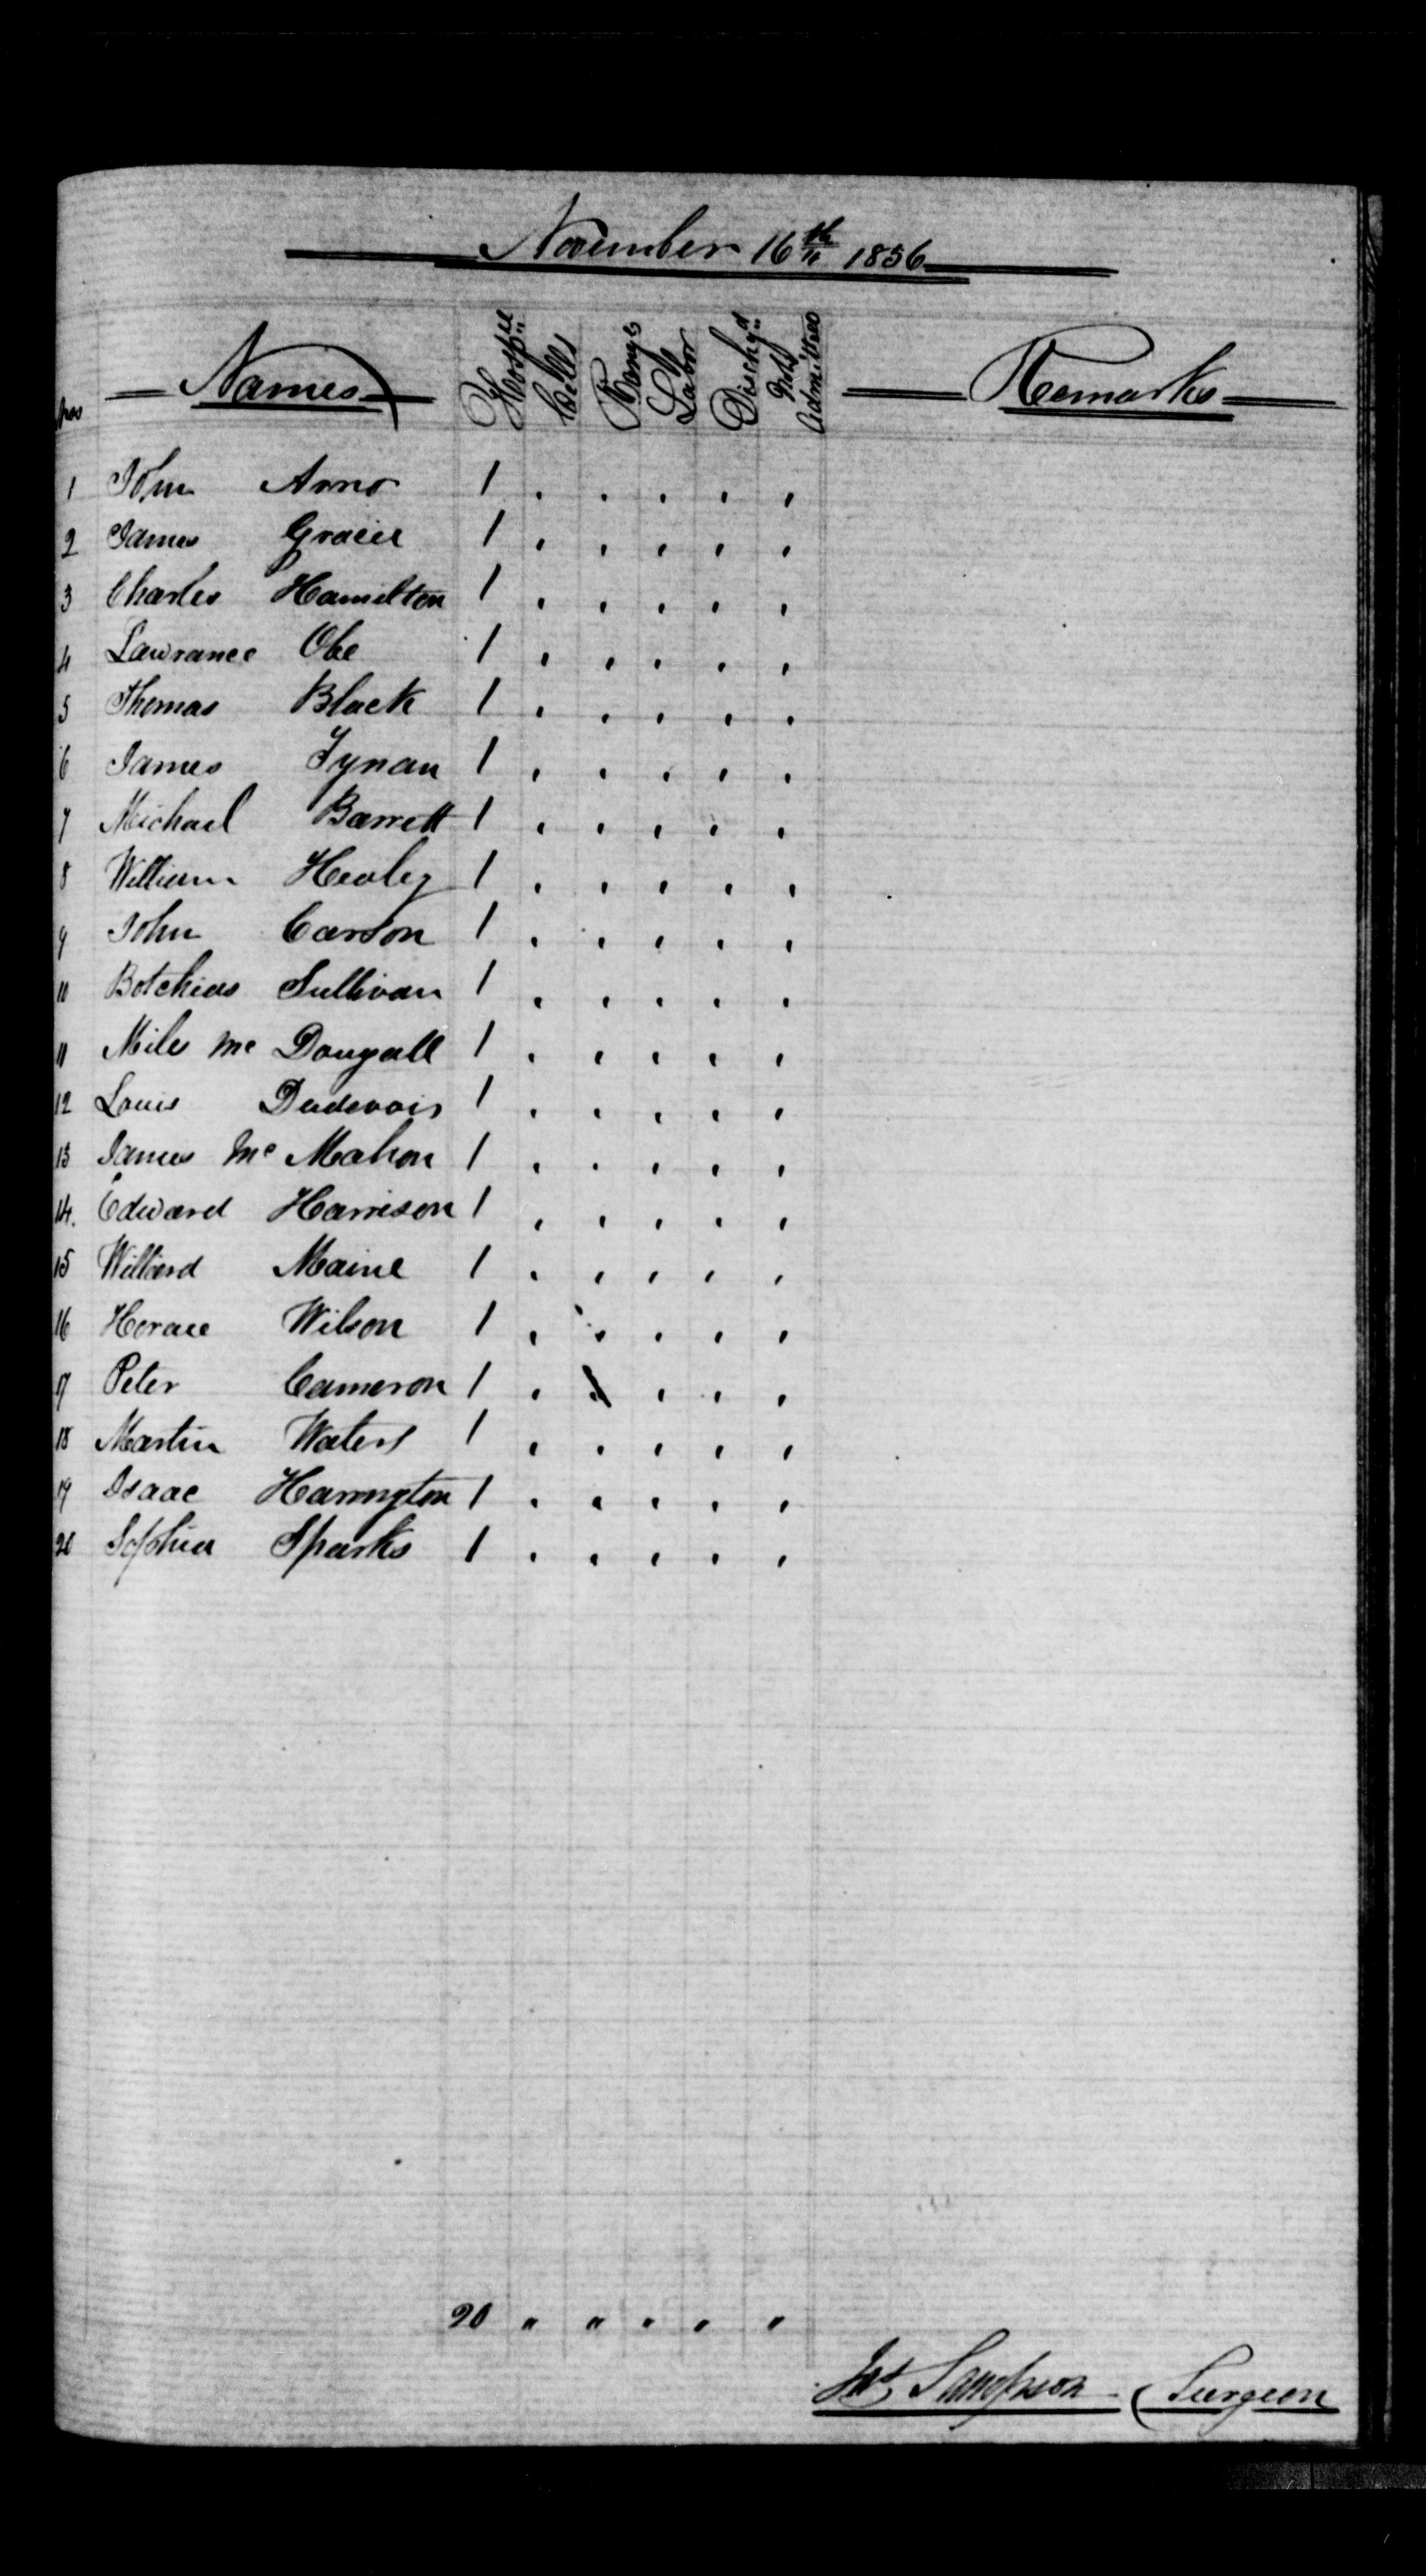 November 16th 1856
Nos Names Hospl Cells Range Labor Dischgd Not Admitted Remarks
1 John Arno 1 , , , , ,
2 James Gracie 1 , , , , ,
3 Charles Hamilton 1 , , , , ,
4 Lawrance Obe 1 , , , , ,
5 Thomas Black 1 , , , , ,
6 James Tynan 1 , , , , ,
7 Michael Barrett 1 , , , , ,
8 William Healey 1 , , , , ,
9 John Carson 1 , , , , ,
10 Sullivan 1 , , , , ,
11 Miles Mc Dougall 1 , , , , ,
12 Louis 1 , , , , ,
13 James Mc Mahon 1 , , , , ,
14. Edward Harrison 1 , , , , ,
15 Willard Maine 1 , , , , ,
16 Horace Wilson 1 , , , , ,
17 Peter Cameron 1 , , , , ,
18 Martin Waters 1 , , , , ,
19 Isaac Harrington 1 , , , , ,
20 Sophia Sparks 1 , , , , ,
20 " " " " "
Jas Sampson Surgeon